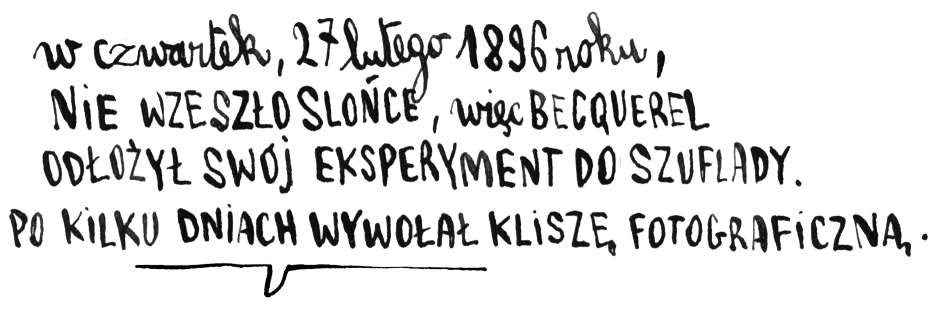 w czwartek, 27 lutego 1896 roku,
NiE WZESZŁO SLOŃCE, więc BECQUEREL
ODŁOŻYŁ SWÓJ EKSPERYMENT DO SZUFLADY.
PO KiLKU DNiACH WYWOŁAŁ KLiSZĘ FOTOGRAFiCZNĄ.